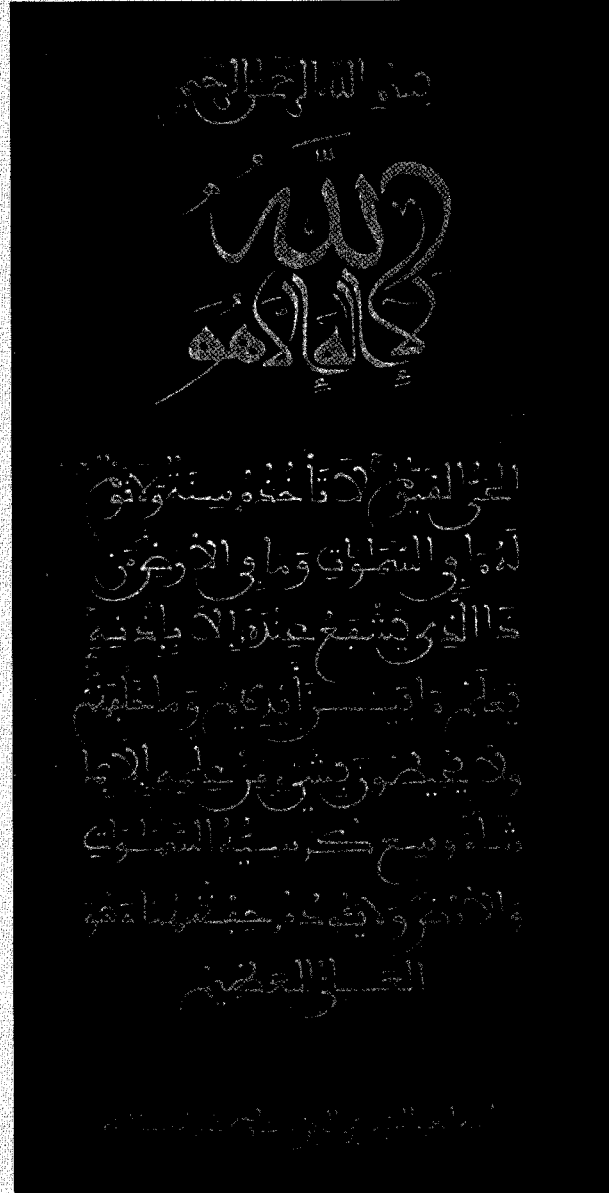 بسم الله الرحمن الرحيم
الله
لا إله إلا هو
الحي القيوم لا تأخذه سنة ولا نوم
له ما في السموات وما في الأرض من
ذا الذي يشفع عنده إلا بإذنه
يعلم ما بين أيديهم وما خلفهم
ولا يحيطون بشيء من علمه إلا بما
شاء وسع كرسيه السموات
والأرض ولا يئوده حفظهما وهو
العلي العظيم